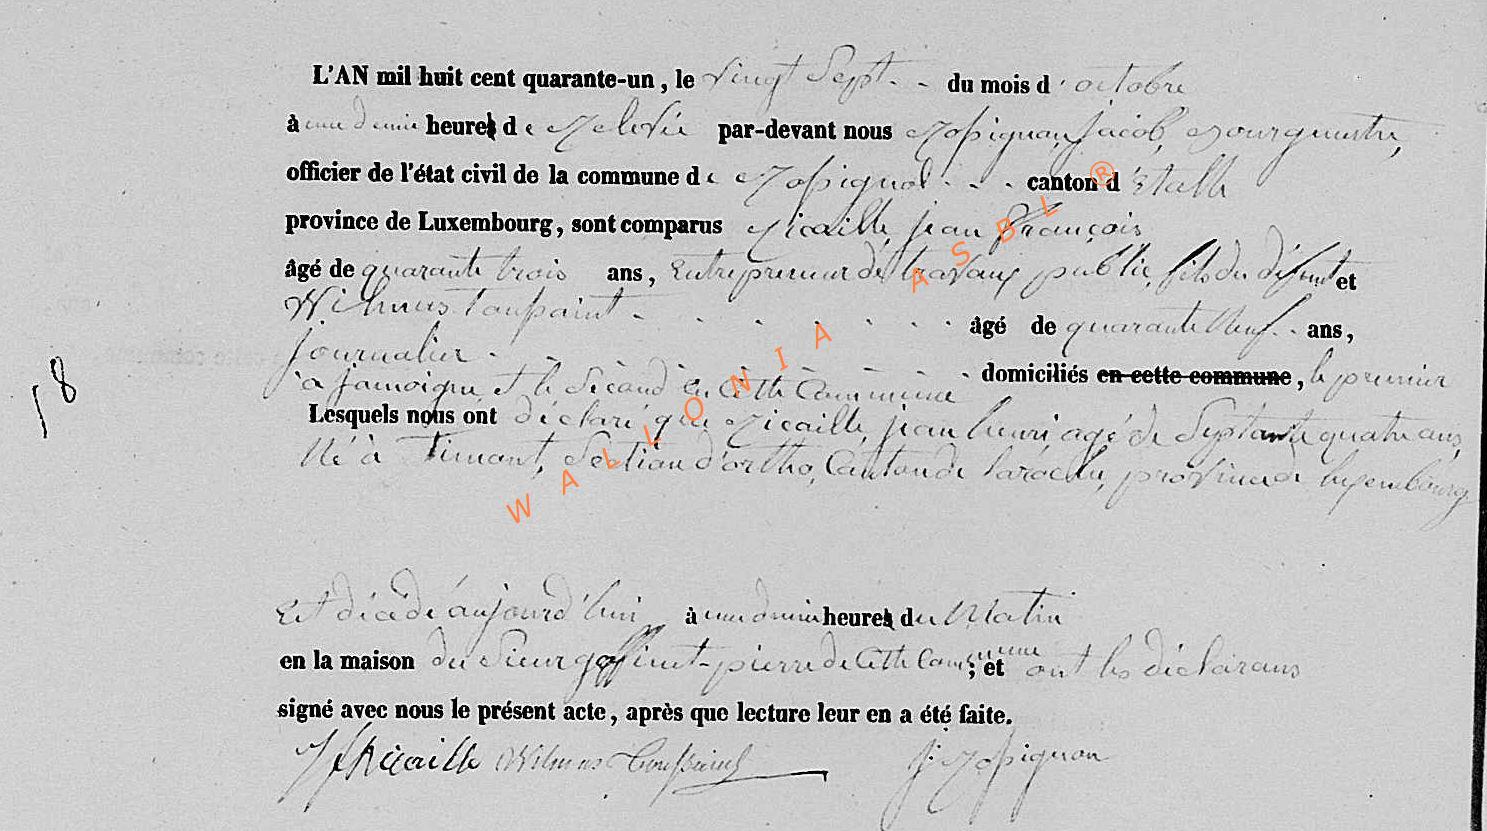 L'AN mil huit cent quarante-un, le vingt Sept - - du mois d'octobre
à une demie heure de Relevée par-devant nous Rossignon, jacob, Bourguestre,
officier de l'état civil de la commune de Rossignol - - - canton d'Etalle
province de Luxembourg, sont comparus Ricaille, jean François
âgé de quarante trois ans, Entrepreneur de travaux public, fils du défunt et
Wilmus Toussaint - - - - - - - - âgé de quarante Neuf - - ans,
journalier - - - - - - - - domiciliés en cette commune, le premier
à jamoigne, et le Second en Cette Commune
18
Lesquels nous ont déclaré que Ricaille, jean henri agé de Septante quatre ans,
Né à Fimont, Section d'ortho, Canton de laroche, province de luxembourg
Est décédé aujourd'hui à une demie heure du Matin
en la maison du Sieur goffinet-pierre de Cette Commune ; et ont les déclarans
signé avec nous le présent acte, après que lecture leur en a été faite.
JF Ricaille Wilmus Toussaint J. Rossignon
WALLONIA ASBL ®